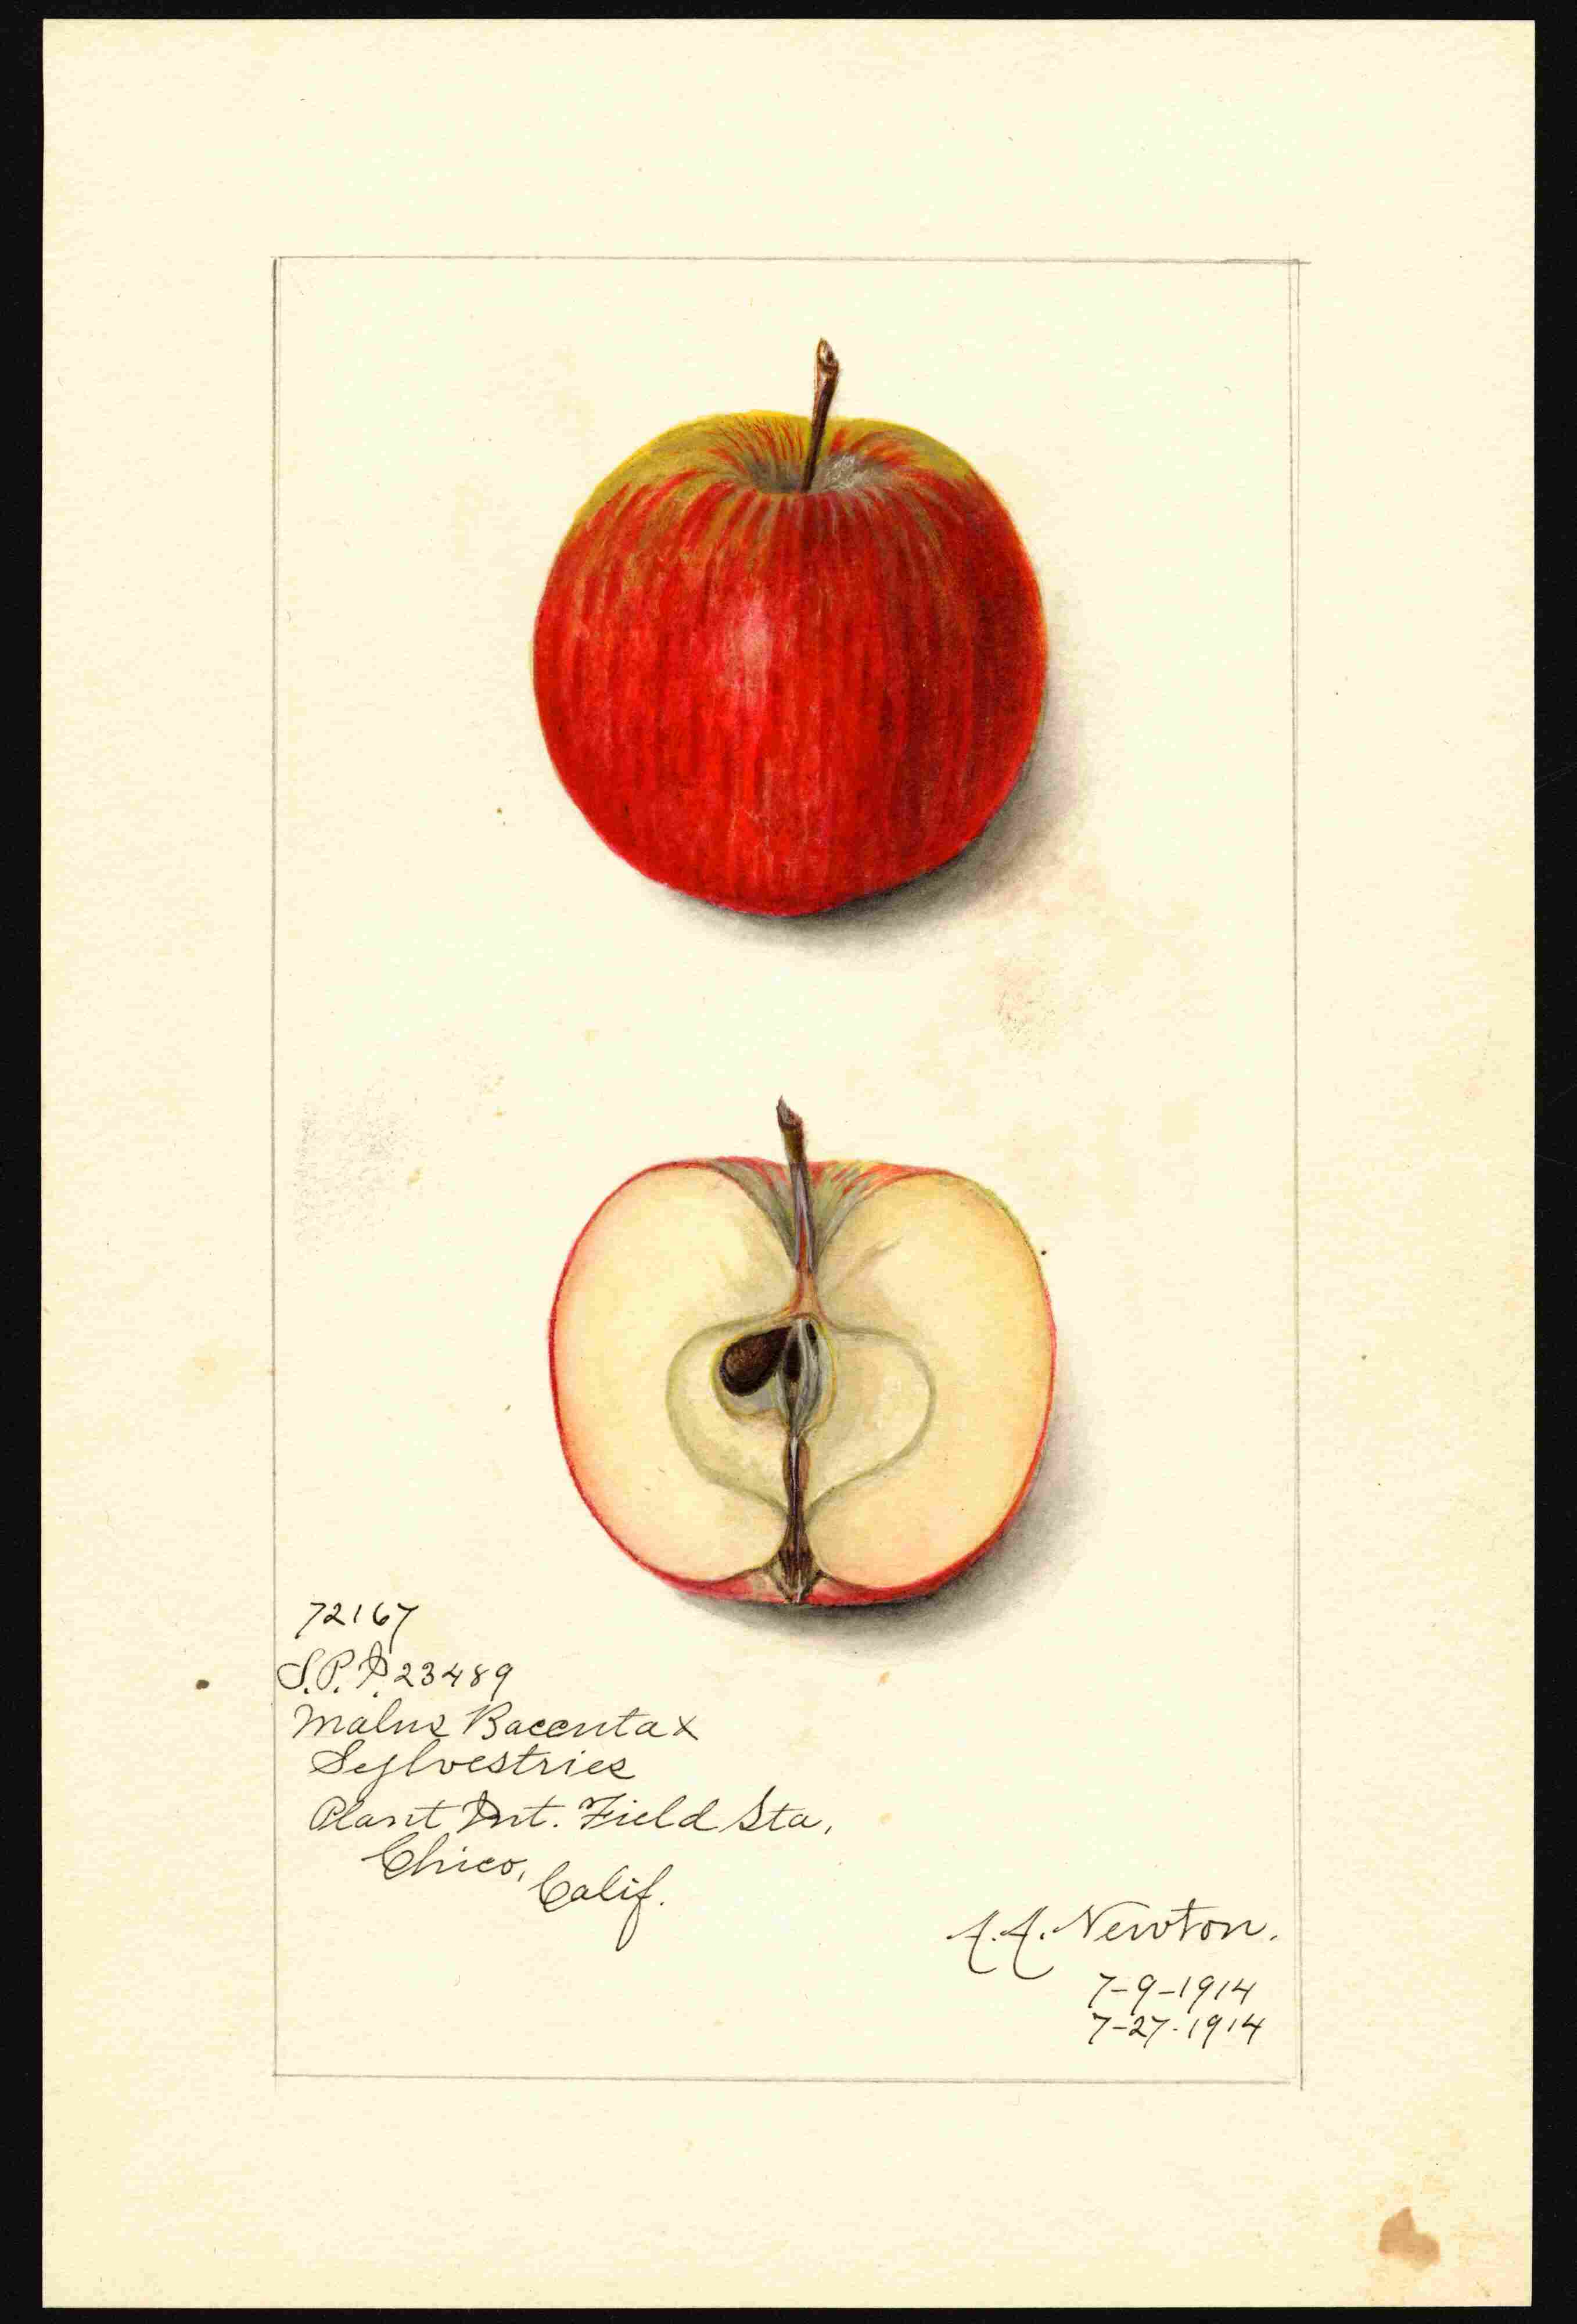 72167
S.P.I. 23489
Malus Baccata x
Sylvestries
Plant Int. Field Sta.
Chico,
Calif.
A.A. Newton.
7-9-1914
7-27-1914